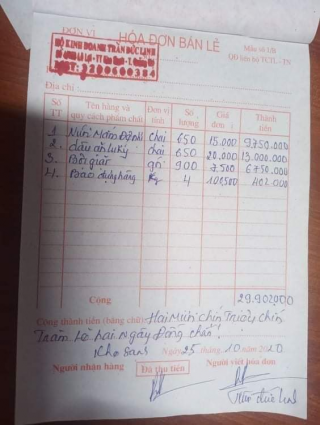 ĐƠN VỊ
HÓA ĐƠN BÁN LẺ
Mẫu số
HỘ KINH DOANH TRẦN ĐỨC LINH
MST: 3200600384
Địa chỉ
Số TT Tên hàng và quy cách phẩm chất Đơn vị tính Số lượng Giá đơn vị Thành tiền
1 chai 650 15.000 9750.000
2. dầu ăn chai 650 20.000 13.000.000
3. Bột giặt gói 900 7.500 6750.000
4. Bao đựng hàng kg 4 100.500 402.000
Cộng 29.902.000
Cộng thành tiền (bằng chữ) Hai Mươi Chín Triệu Chín
Trăm Lẻ hai Ngày Đồng chẵn!
Kho Sanh Ngày 25 tháng 10 năm 2020
Người nhận hàng Đã thu tiền Người viết hóa đơn